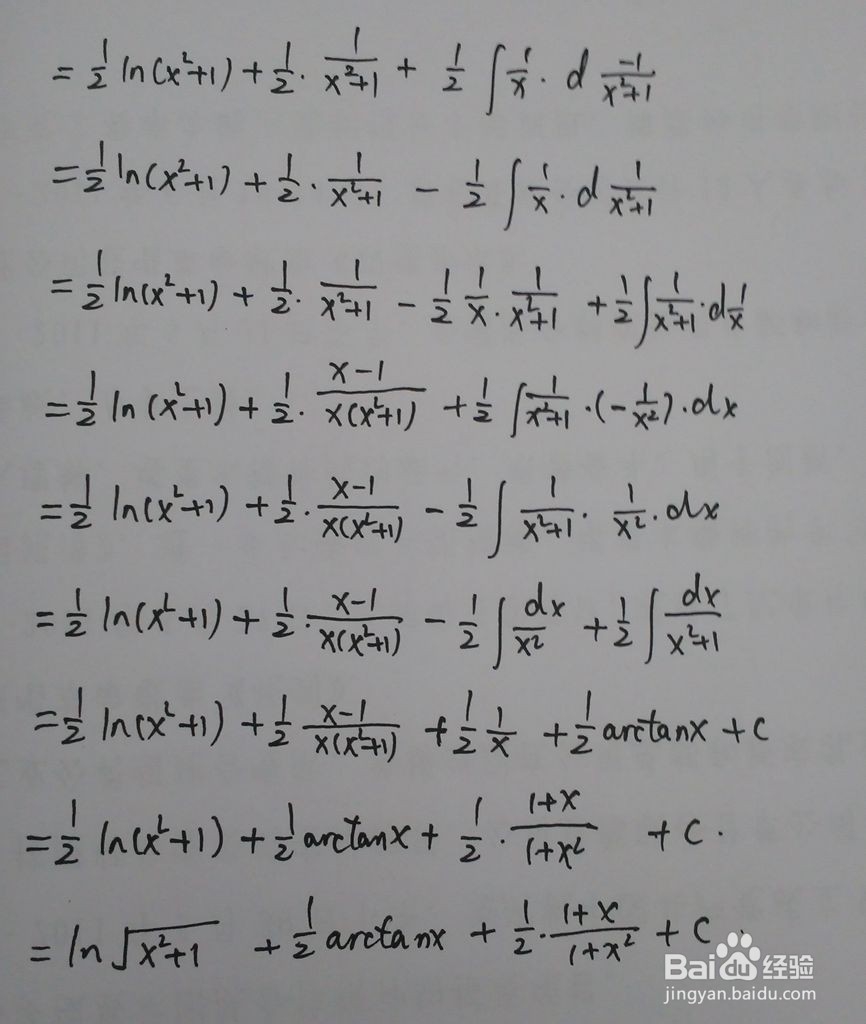 = 1/2 ln(x²+1) + 1/2 · 1/(x²+1) + 1/2 ∫ 1/x · d -1/(x²+1)
= 1/2 ln(x²+1) + 1/2 · 1/(x²+1) - 1/2 ∫ 1/x · d 1/(x²+1)
= 1/2 ln(x²+1) + 1/2 · 1/(x²+1) - 1/2 1/x · 1/(x²+1) + 1/2 ∫ 1/(x²+1) · d 1/x
= 1/2 ln(x²+1) + 1/2 · (x-1)/(x(x²+1)) + 1/2 ∫ 1/(x²+1) · (-1/x²) · dx
= 1/2 ln(x²+1) + 1/2 · (x-1)/(x(x²+1)) - 1/2 ∫ 1/(x²+1) · 1/x² · dx
= 1/2 ln(x²+1) + 1/2 · (x-1)/(x(x²+1)) - 1/2 ∫ dx/x² + 1/2 ∫ dx/(x²+1)
= 1/2 ln(x²+1) + 1/2 (x-1)/(x(x²+1)) + 1/2 1/x + 1/2 arctanx + C
= 1/2 ln(x²+1) + 1/2 arctanx + 1/2 · (1+x)/(1+x²) + C.
= ln√(x²+1) + 1/2 arctanx + 1/2 · (1+x)/(1+x²) + C.
Baidu经验
jingyan.baidu.com